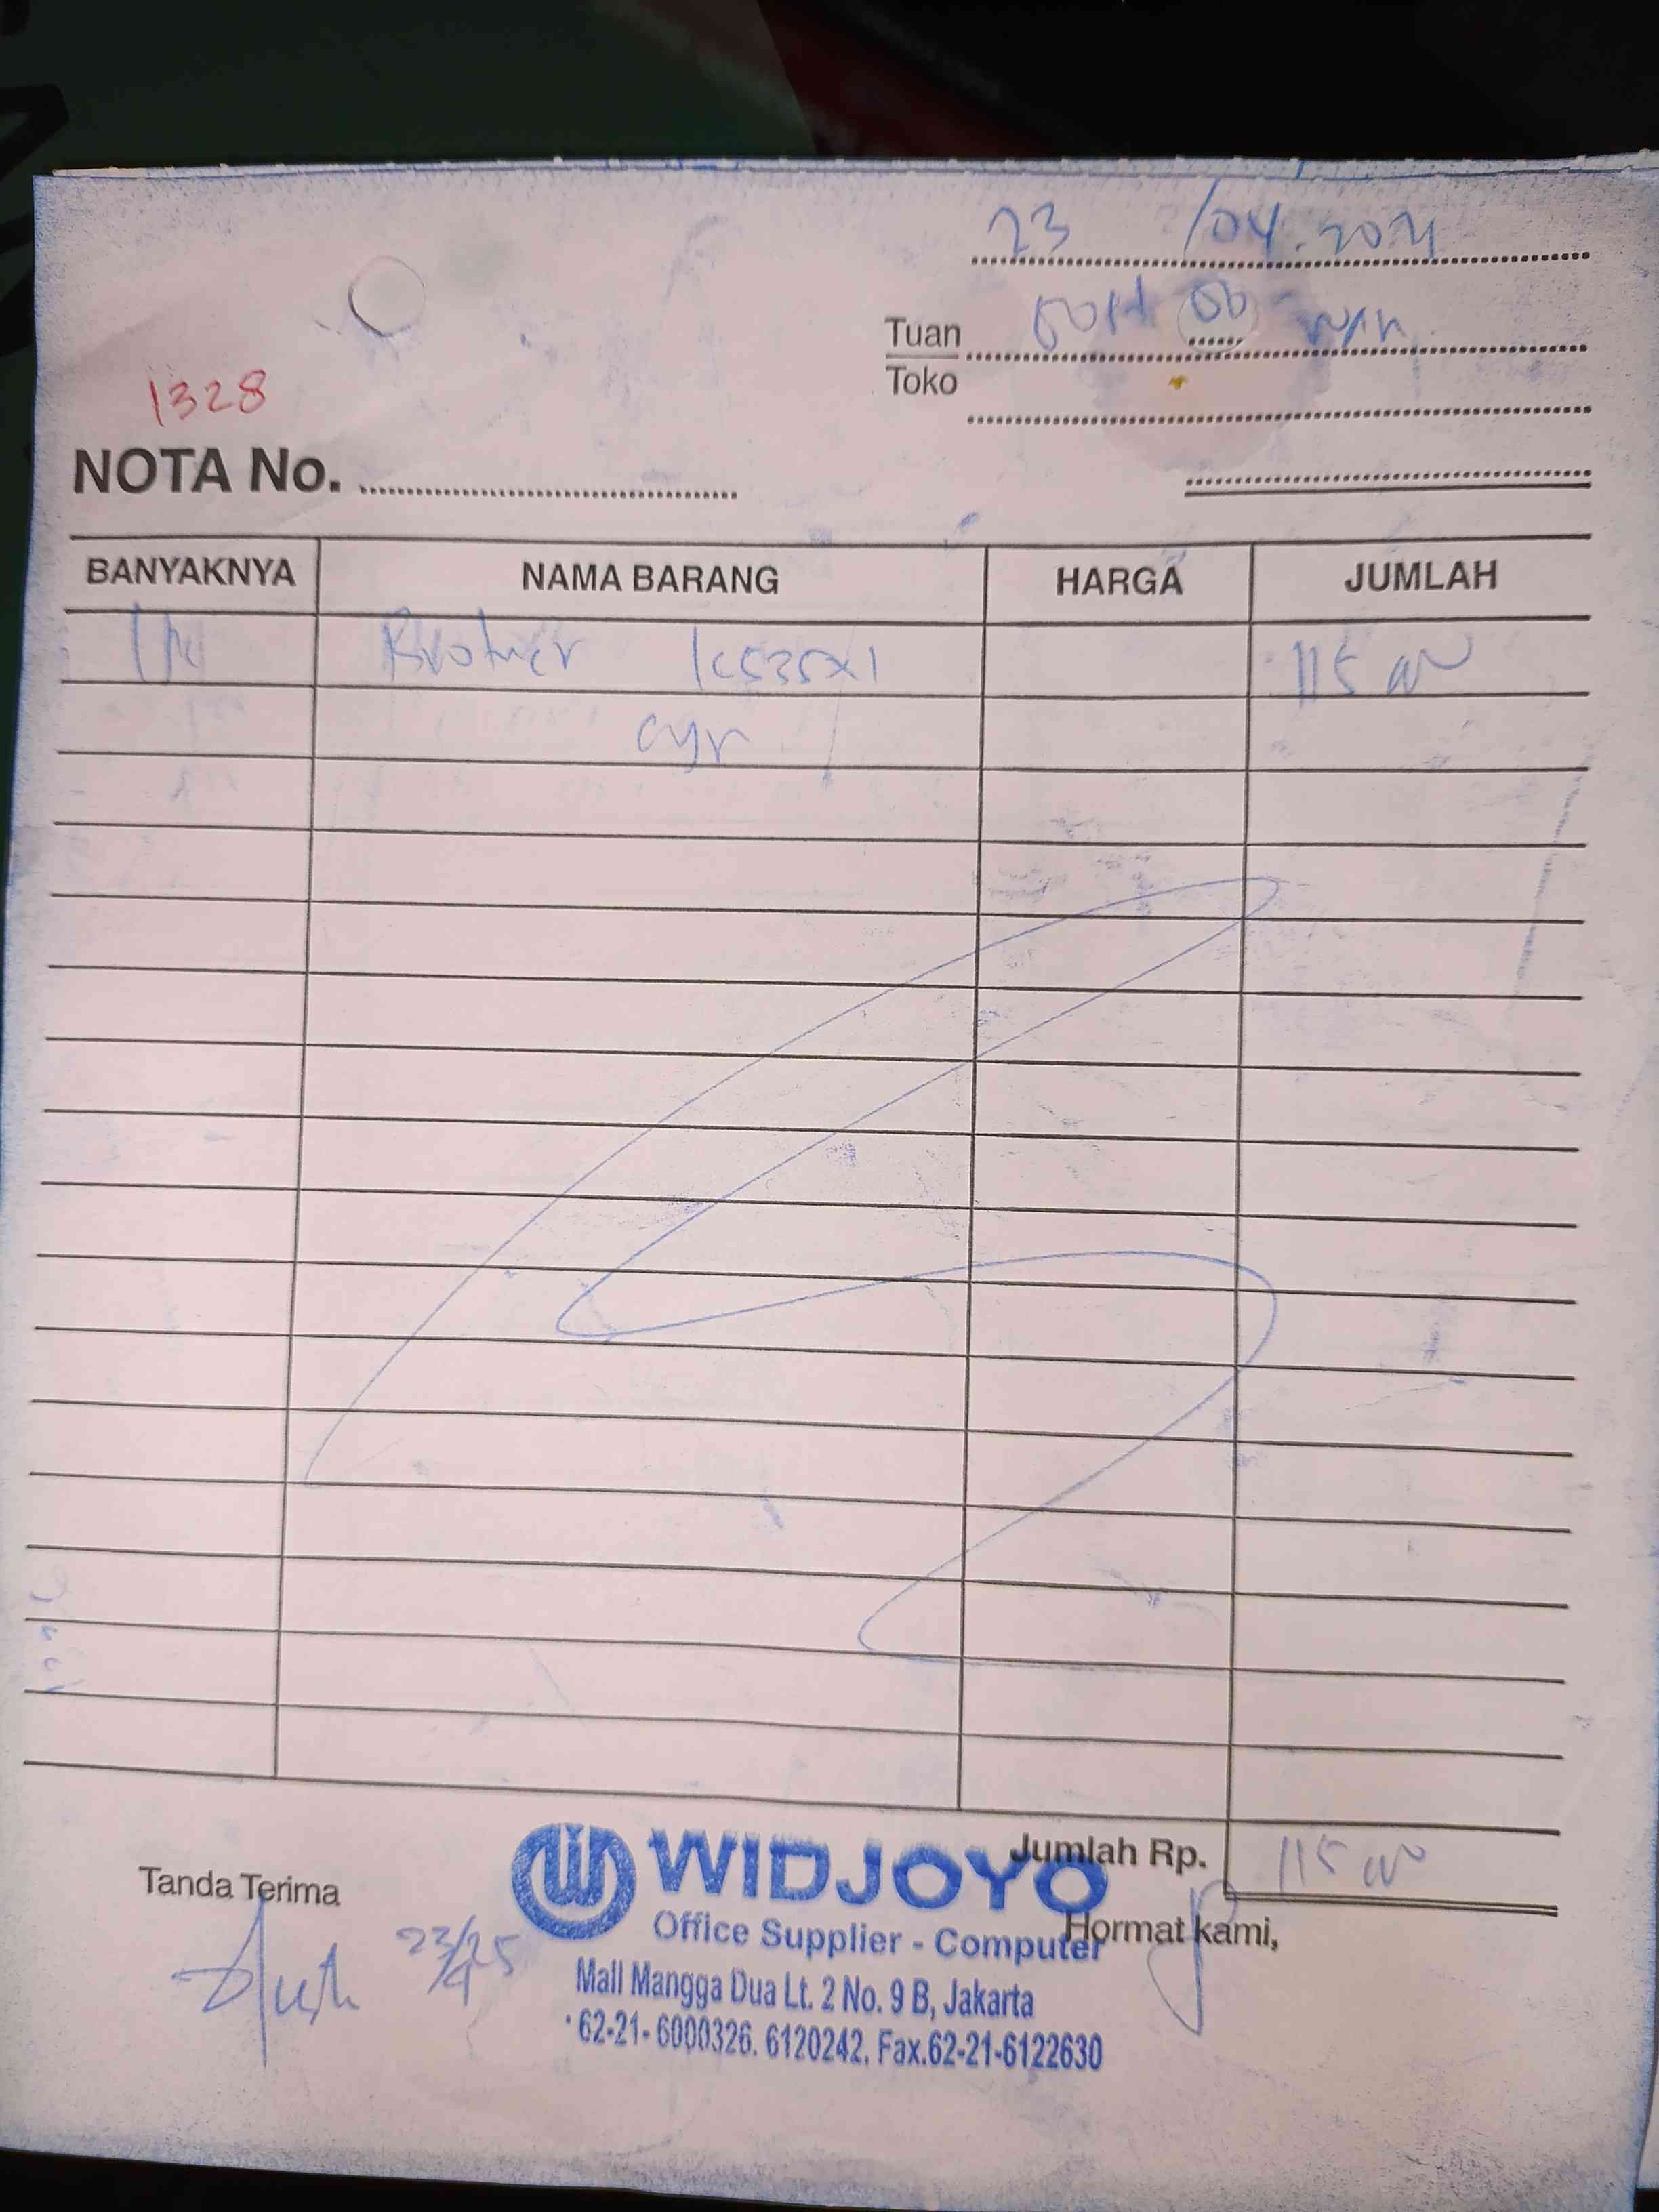 23 /04.2021
Tuan
Toko
1328
NOTA No.
BANYAKNYA NAMA BARANG HARGA JUMLAH
Brother 115
Jumlah Rp. 115
Tanda Terima
Hormat kami,
23/4 25
WIDJOYO
Office Supplier - Computer
Mall Mangga Dua Lt. 2 No. 9 B, Jakarta
62-21- 6000326. 6120242. Fax.62-21-6122630